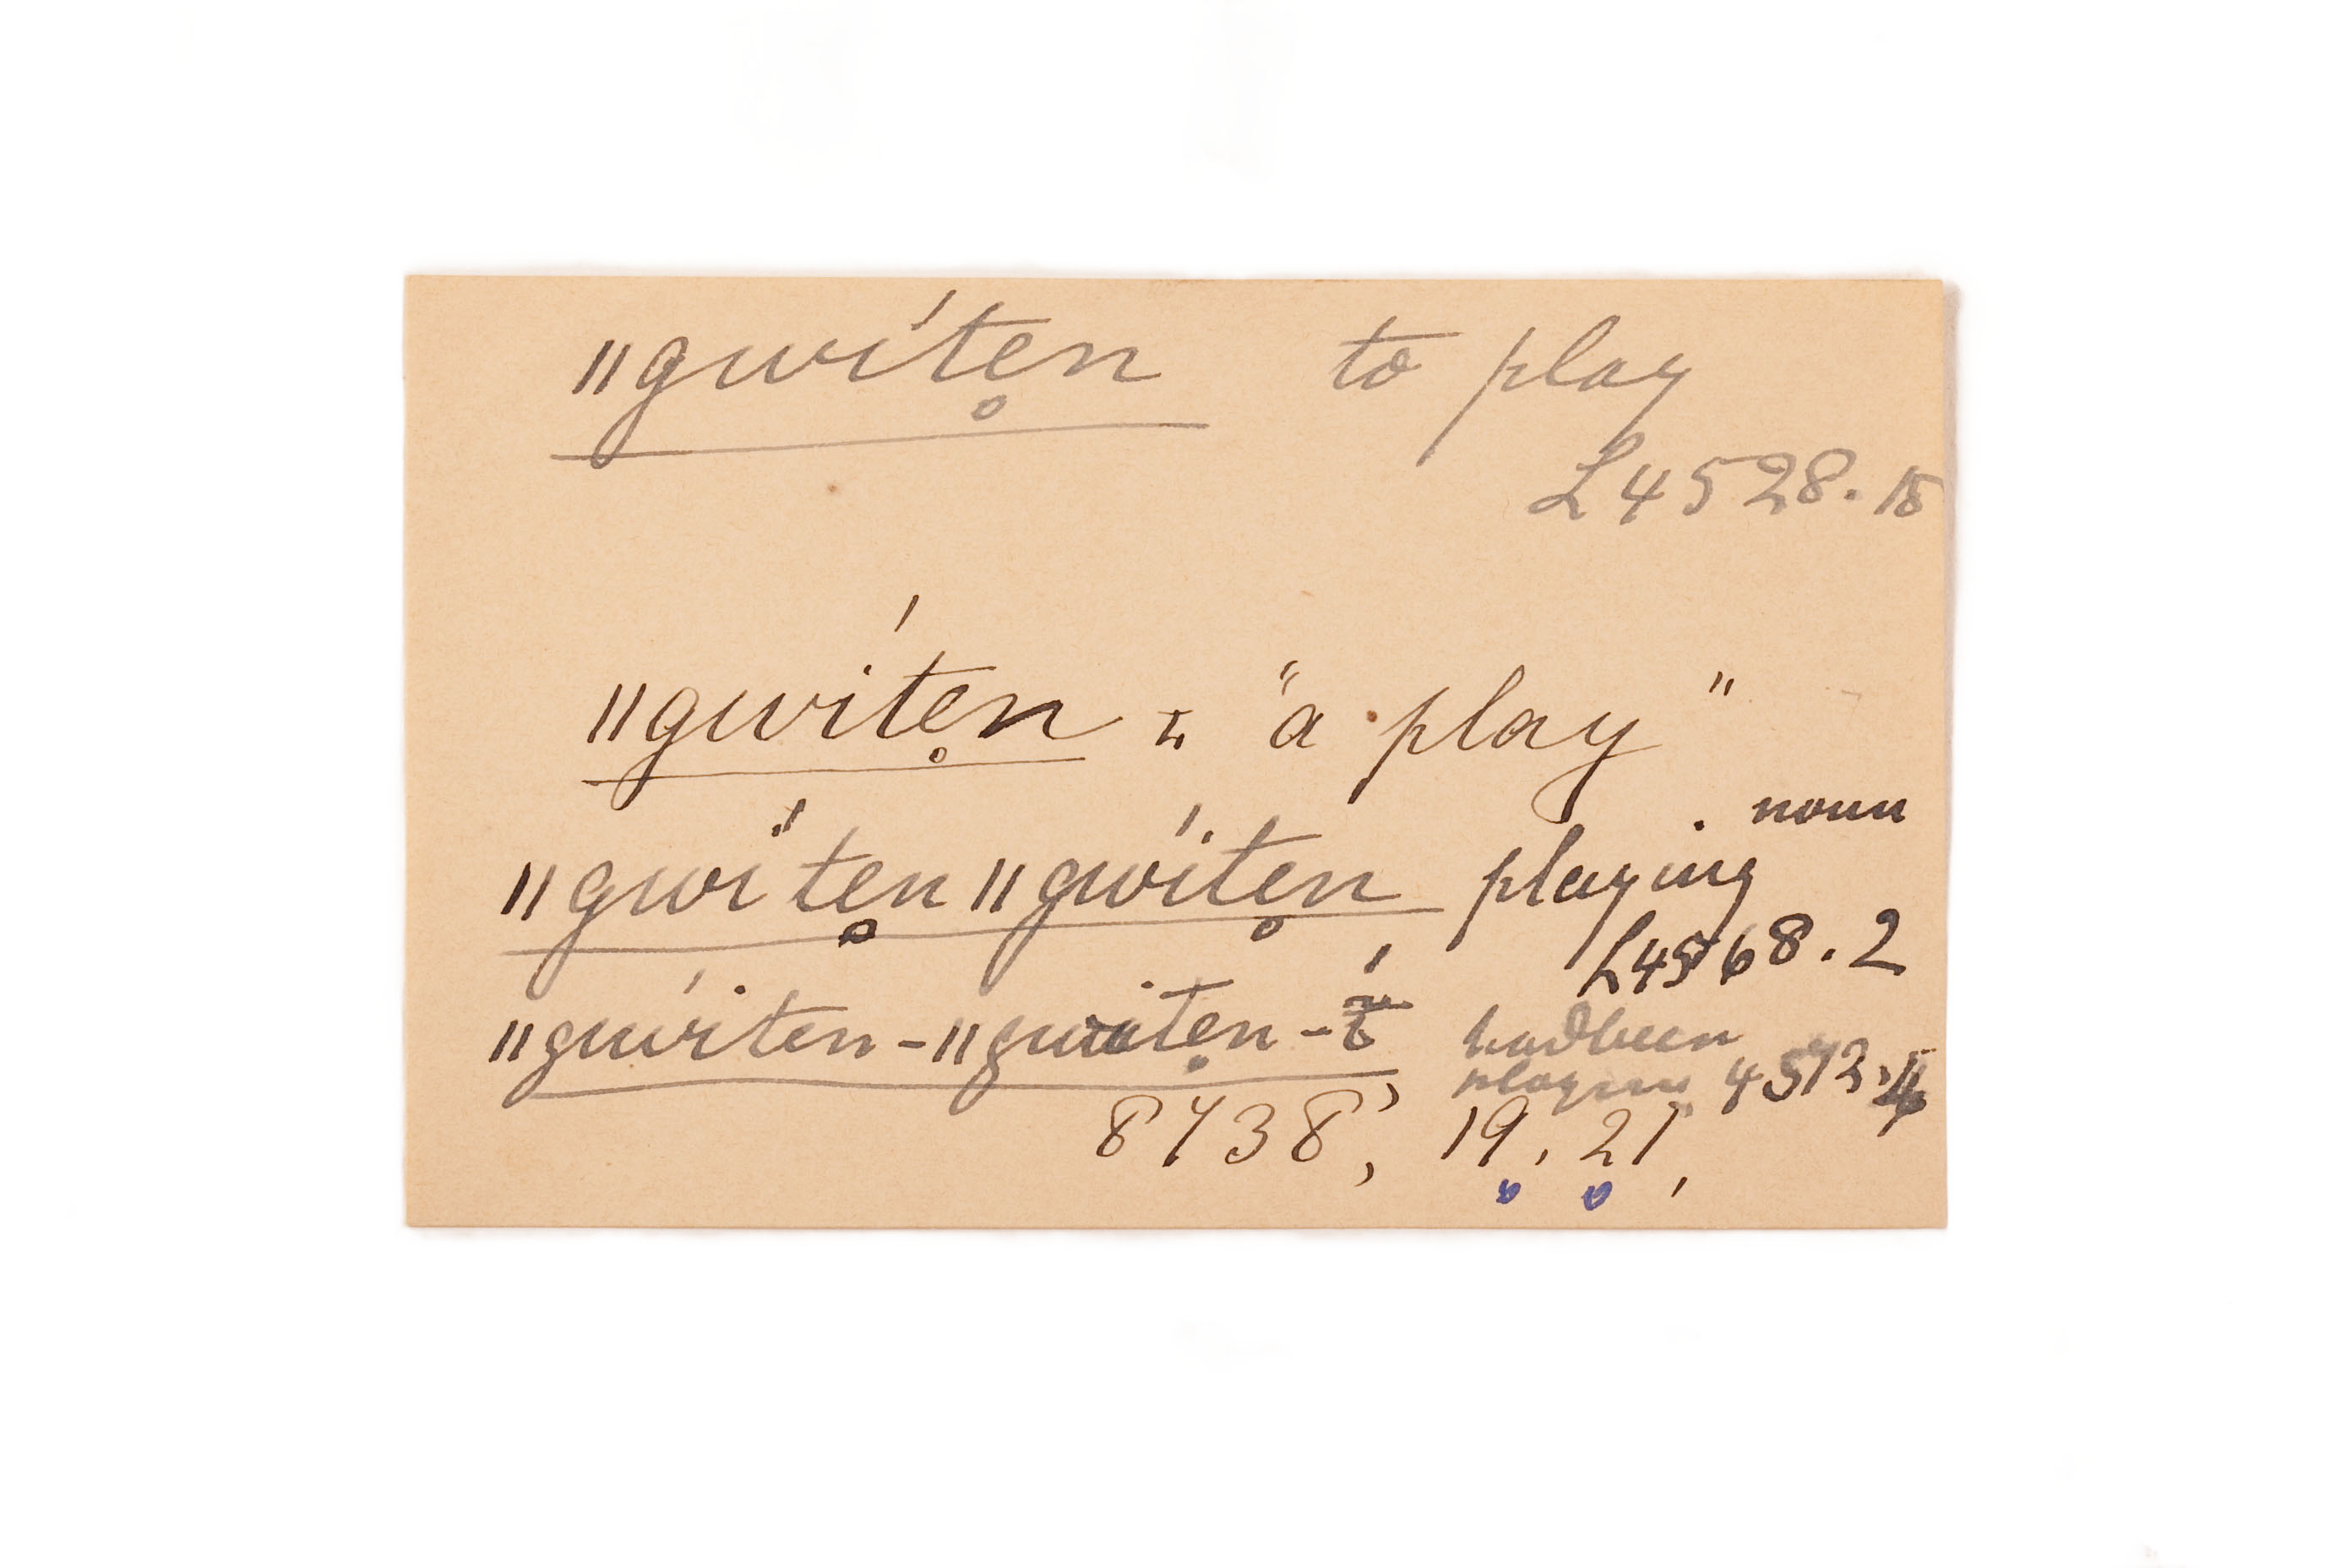 ǁgwíte̥n to play
L4528.15
ǁgwíte̥n = "a play"
noun
ǁgwíte̥n ǁgwíte̥n playing
L4568.2
ǁgwíten-ǁgwite̥n- had been
4572.
8138; 19, 21,